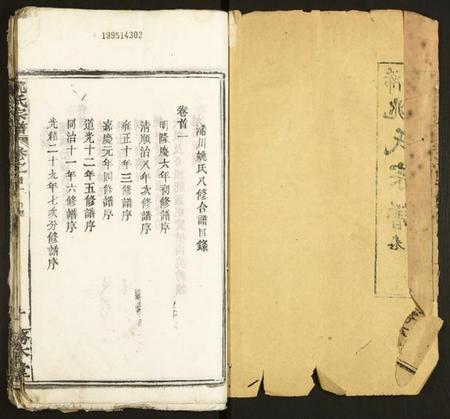 199514302
沩川姚氏八修合譜目錄
卷首一
明隆慶六年刱修譜序
清順治八年次修譜序
雍正十年三修譜序
嘉慶元年四修譜序
道光十二年五修譜序
同治十一年六修譜序
光緒二十九年七次分修譜序
姚氏宗譜
姚氏宗譜